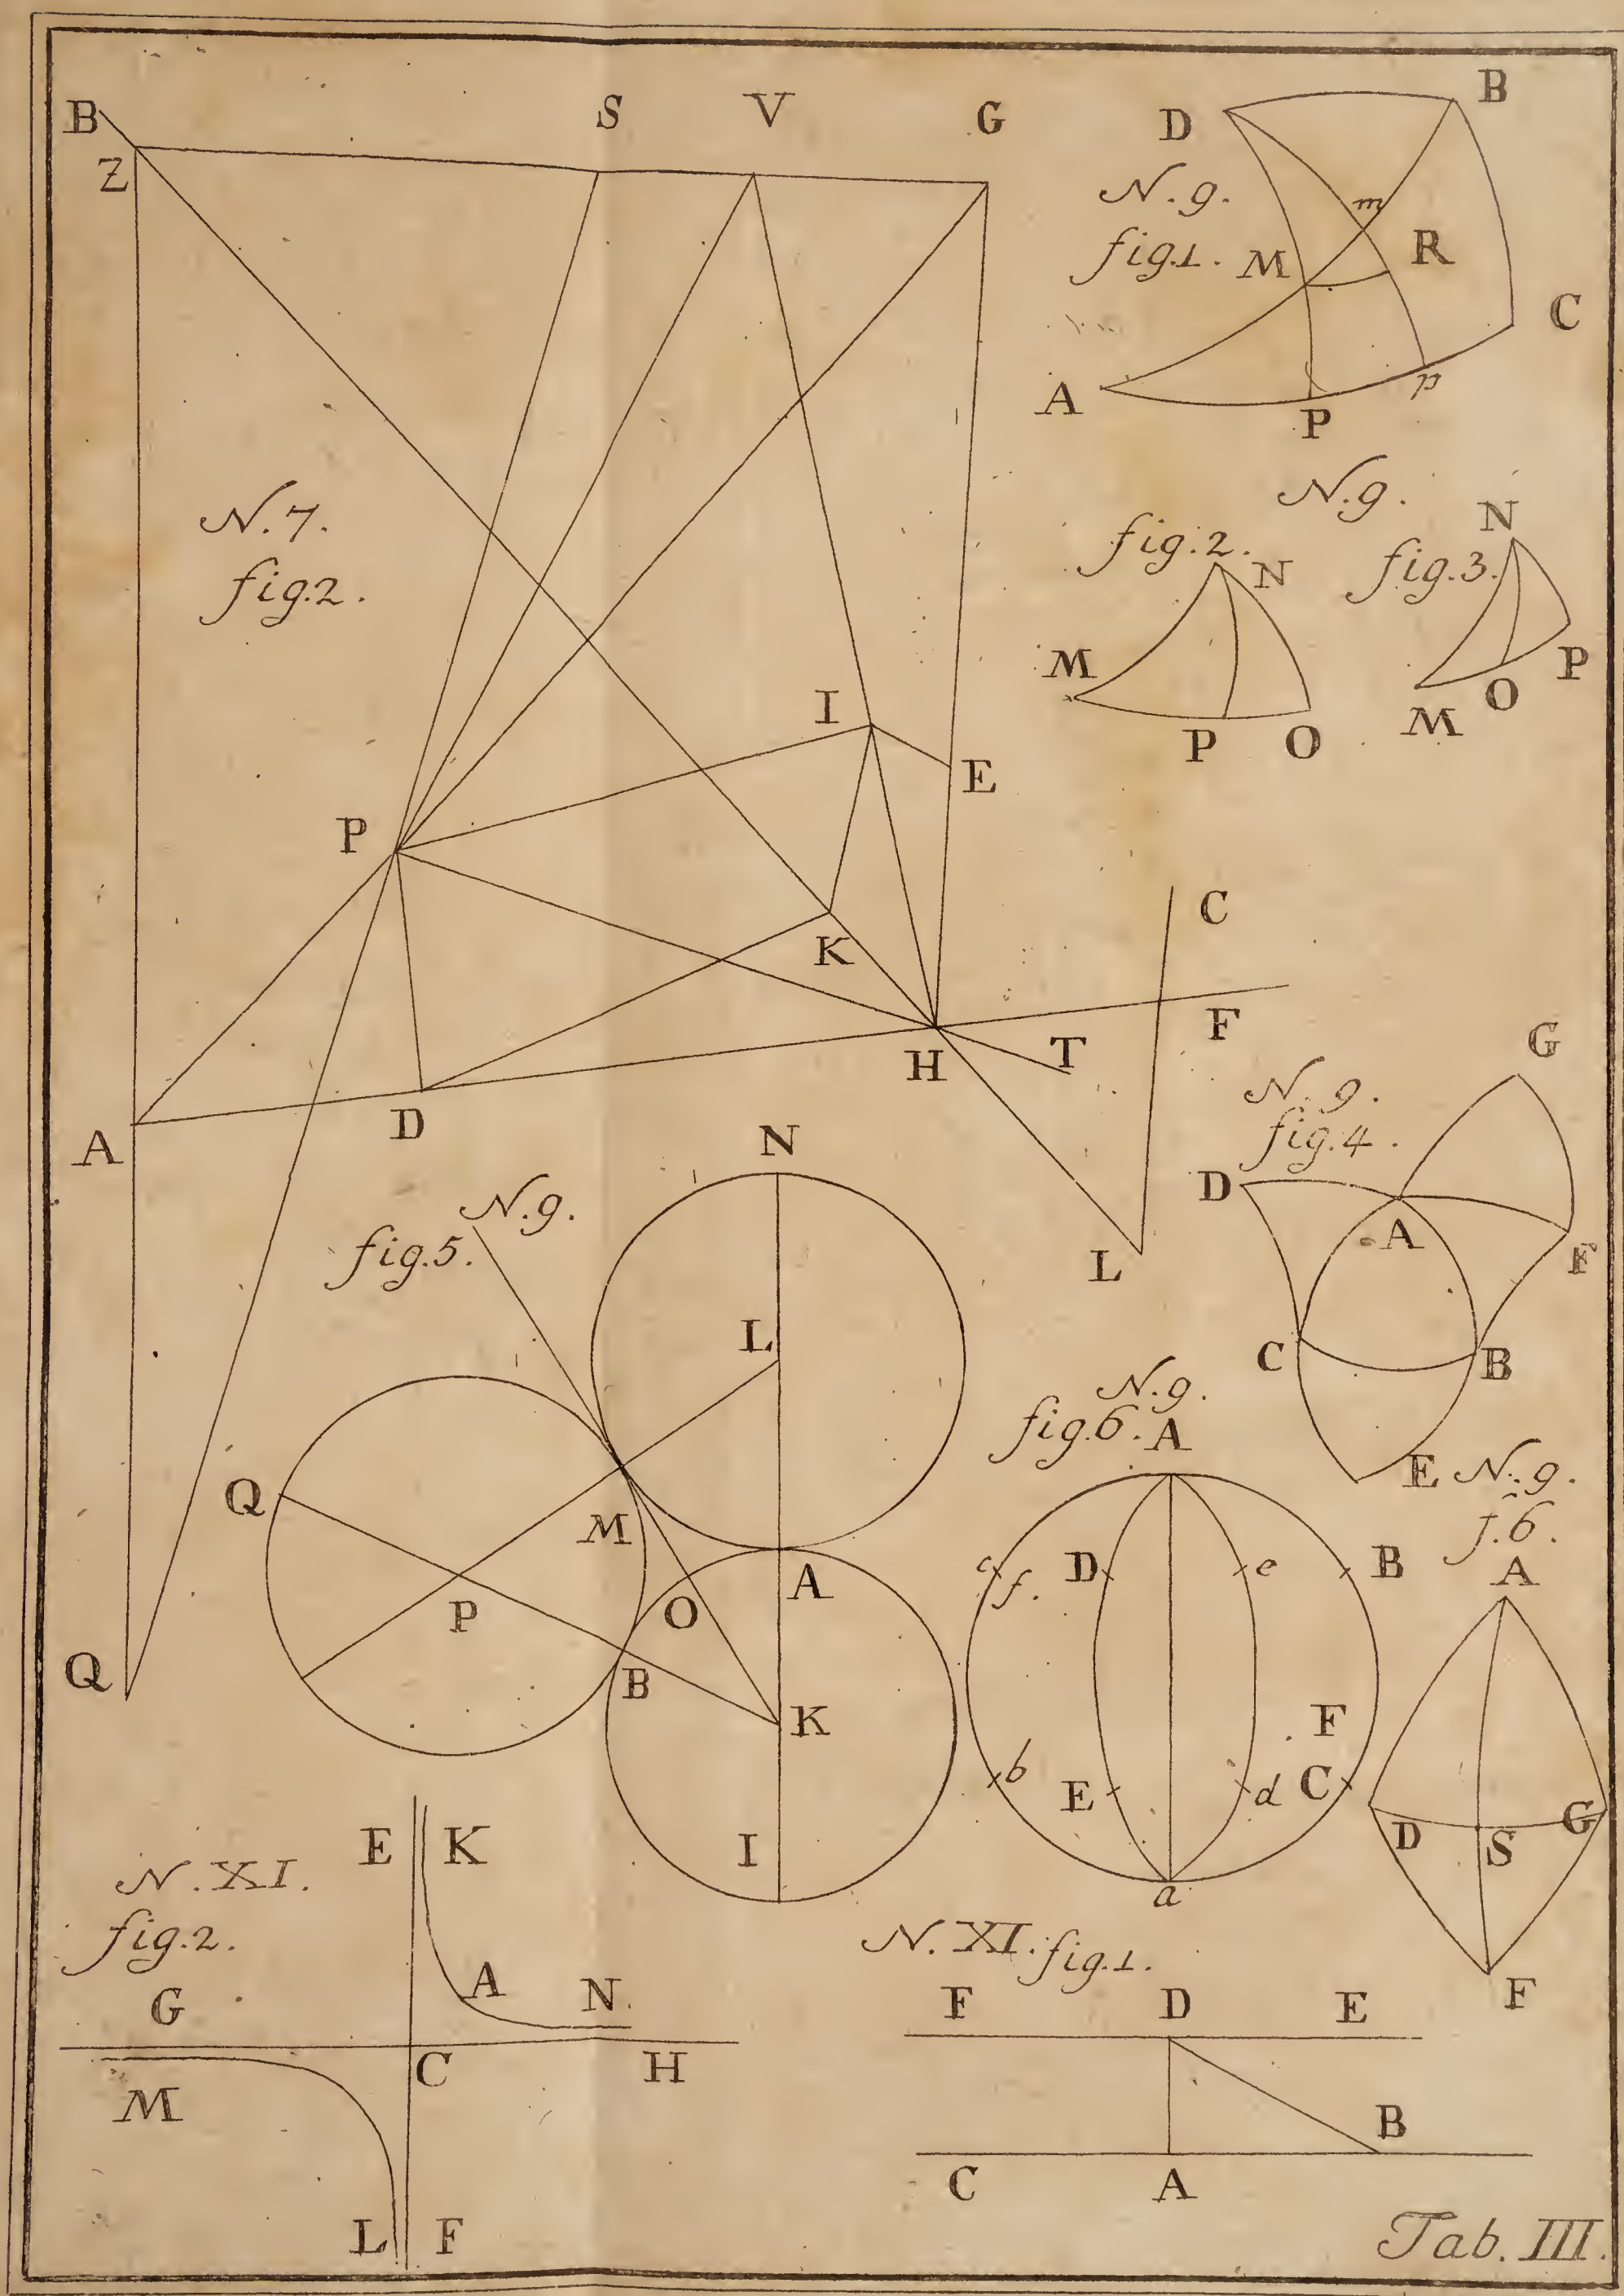 B S V G
Z
N. 7.
fig. 2.
I
E
P
K
C
F
H T
A D
L
Q
D B
N. 9.
fig. 1.
m
M R
C
A P p
N. 9.
fig. 2. N
M
P O
N
fig. 3.
P
M O
G
N. 9.
fig. 4.
D
A
F
C B
E
N
N. 9.
fig. 5.
L
Q
M
A
P O
B
K
I
N. 9.
fig. 6. A
c f. D e B
F
b E d C
a
N. 9.
f. 6.
A
D S G
F
E K
N. XI.
fig. 2.
A N
G
C H
M
L F
N. XI. fig. 1.
F D E
B
C A
Tab. III.